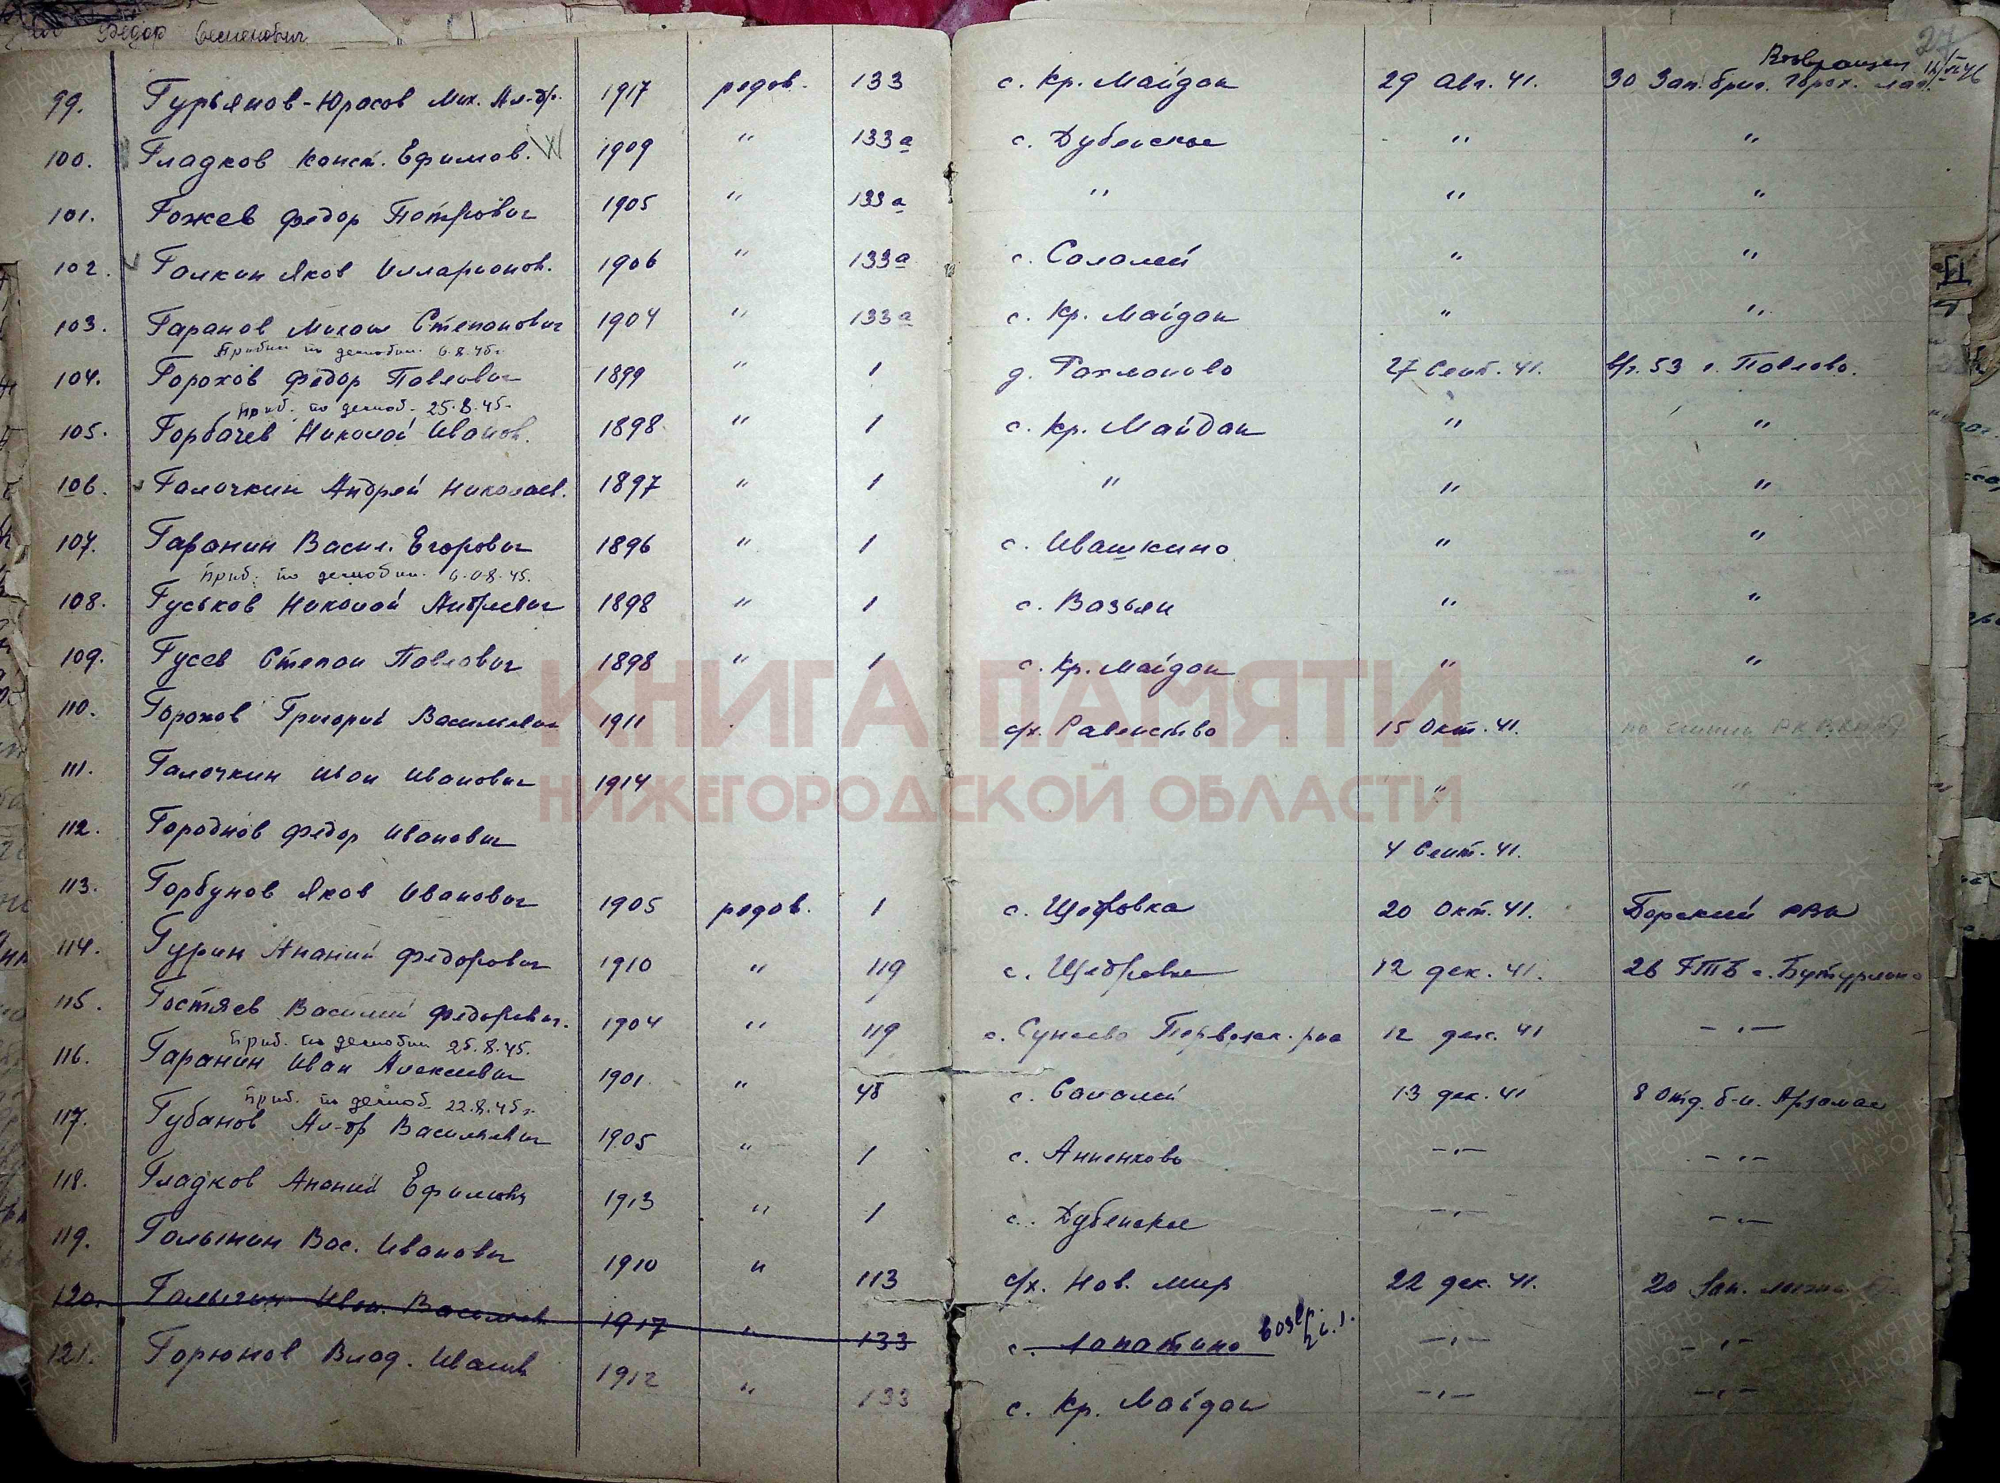 Федор Семенович
27
Возвращен 12/VI 46
99. Гурьянов-Юрасов Мих. Ал-др. 1917 рядов. 133 с. Кр. Майдан 29 Авг. 41. 30 Зап. бриг. Горох. лаг.
100. Гладков Конст. Ефимов. 1909 " 133а с. Дубенское " "
101. Рожев Федор Петрович 1905 " 133а " " "
102. Галкин Яков Илларионов. 1906 " 133а с. Саламей " "
103. Гаранов Михаил Степанович 1904 " 133а с. Кр. Майдан " "
Прибыл по демобил. 6.8.45г.
104. Горохов Федор Павлович 1899 " 1 д. Рахманово 27 Сент. 41. в/г. 53 г. Павлово.
Приб. по демоб. 25.8.45.
105. Горбачев Николай Иванов. 1898 " 1 с. Кр. Майдан " "
106. Галочкин Андрей Николаев. 1897 " 1 " " "
107. Гаранин Васил. Егорович 1896 " 1 с. Ивашкино " "
Приб. по демобил. 6.08.45.
108. Гуськов Николай Андреевич 1898 " 1 с. Вазьян " "
109. Гусев Степан Павлович 1898 " 1 с. Кр. Майдан " "
110. Горохов Григорий Васильевич 1911 с/х. Равенство 15 Окт. 41. по линии РК ВКП(б)
111. Галочкин Иван Иванович 1914 " "
112. Городнов Федор Иванович 4 Сент. 41.
113. Горбунов Яков Иванович 1905 рядов. 1 с. Щедровка 20 Окт. 41. Борский РВК
114. Гурин Ананий Федорович 1910 " 119 с. Щедровка 12 дек. 41. 26 ГТБ с. Бутурлино
115. Гостяев Василий Федорович. 1904 " 119 с. Сунеево Первомак. р-на 12 дек. 41 —"—
Приб. по демобил 25.8.45.
116. Гаранин Иван Алексеевич 1901 " 48 с. Саламей 13 дек. 41 8 Отд. б-н. Арзамас
Приб. по демоб. 22.8.45г.
117. Губанов Ал-др Васильевич 1905 " 1 с. Анненково —"— —"—
118. Гладков Ананий Ефимович 1913 " 1 с. Дубенское —"— —"—
119. Галынин Вас. Иванович 1910 " 113 с/х. Нов. мир 22 дек. 41. 20 Зап.
120. Галыгин Иван. Васильев 1917 " 133 с. Лопатино —"— —"—
121. Горюнов Влад. 1912 " 133 с. Кр. Майдан —"— —"—
КНИГА ПАМЯТИ
НИЖЕГОРОДСКОЙ ОБЛАСТИ
ПАМЯТЬ НАРОДА